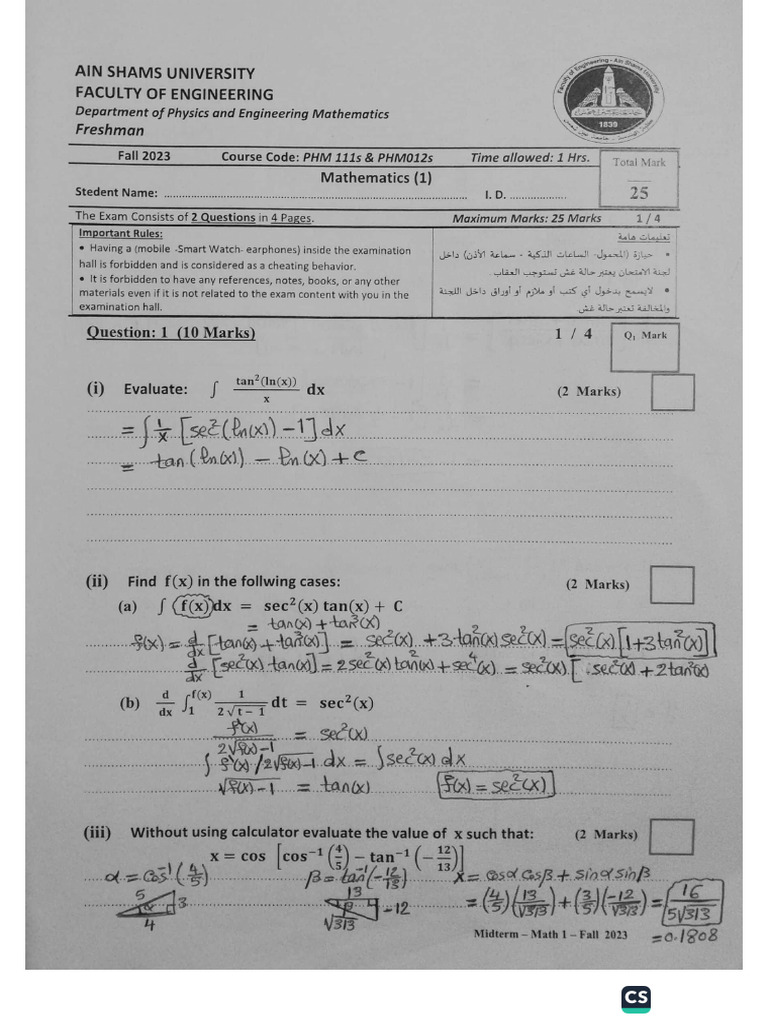 AIN SHAMS UNIVERSITY
FACULTY OF ENGINEERING
Department of Physics and Engineering Mathematics
Freshman
Faculty of Engineering - Ain Shams University
1839
Fall 2023 Course Code: PHM 111s & PHM012s Time allowed: 1 Hrs.
Total Mark
25
Mathematics (1)
Stedent Name: ........ I. D. ........
The Exam Consists of 2 Questions in 4 Pages. Maximum Marks: 25 Marks 1 / 4
Important Rules:
• Having a (mobile -Smart Watch- earphones) inside the examination
hall is forbidden and is considered as a cheating behavior.
• It is forbidden to have any references, notes, books, or any other
materials even if it is not related to the exam content with you in the
examination hall.
تعليمات هامة
• حيازة (المحمول- الساعات الذكية - سماعة الأذن) داخل
لجنة الامتحان يعتبر حالة غش تستوجب العقاب.
• لايسمح بدخول أي كتب أو ملازم أو أوراق داخل اللجنة
والمخالفة تعتبر حالة غش
Question: 1 (10 Marks) 1 / 4 Q₁ Mark
(i) Evaluate: ∫ tan²(ln(x))/x dx (2 Marks)
= ∫ 1/x [sec²(ln(x)) - 1] dx
= tan(ln(x)) - ln(x) + c
(ii) Find f(x) in the follwing cases: (2 Marks)
(a) ∫ f(x) dx = sec²(x) tan(x) + C
= tan(x) + tan³(x)
f(x) = d/dx [tan(x) + tan³(x)] = sec²(x) + 3 tan²(x) sec²(x) = sec²(x) [1 + 3 tan²(x)]
d/dx [sec²(x) tan(x)] = 2 sec²(x) tan²(x) + sec⁴(x) = sec²(x) [sec²(x) + 2 tan²(x)
(b) d/dx ∫₁^f(x) 1/(2√(t - 1)) dt = sec²(x)
f'(x)/(2√(f(x)-1)) = sec²(x)
∫ f'(x)/2√(f(x)-1) dx = ∫ sec²(x) dx
√(f(x)-1) = tan(x) f(x) = sec²(x)
(iii) Without using calculator evaluate the value of x such that: (2 Marks)
x = cos [cos⁻¹(4/5) − tan⁻¹(−12/13)]
α = cos⁻¹(4/5) β = tan⁻¹(-12/13) x = cosα cosβ + sinα sinβ
5 3 4 α
13 -12 √313 β
= (4/5)(13/√313) + (3/5)(-12/√313) = 16/(5√313)
= 0.1808
Midterm – Math 1 – Fall 2023
CS